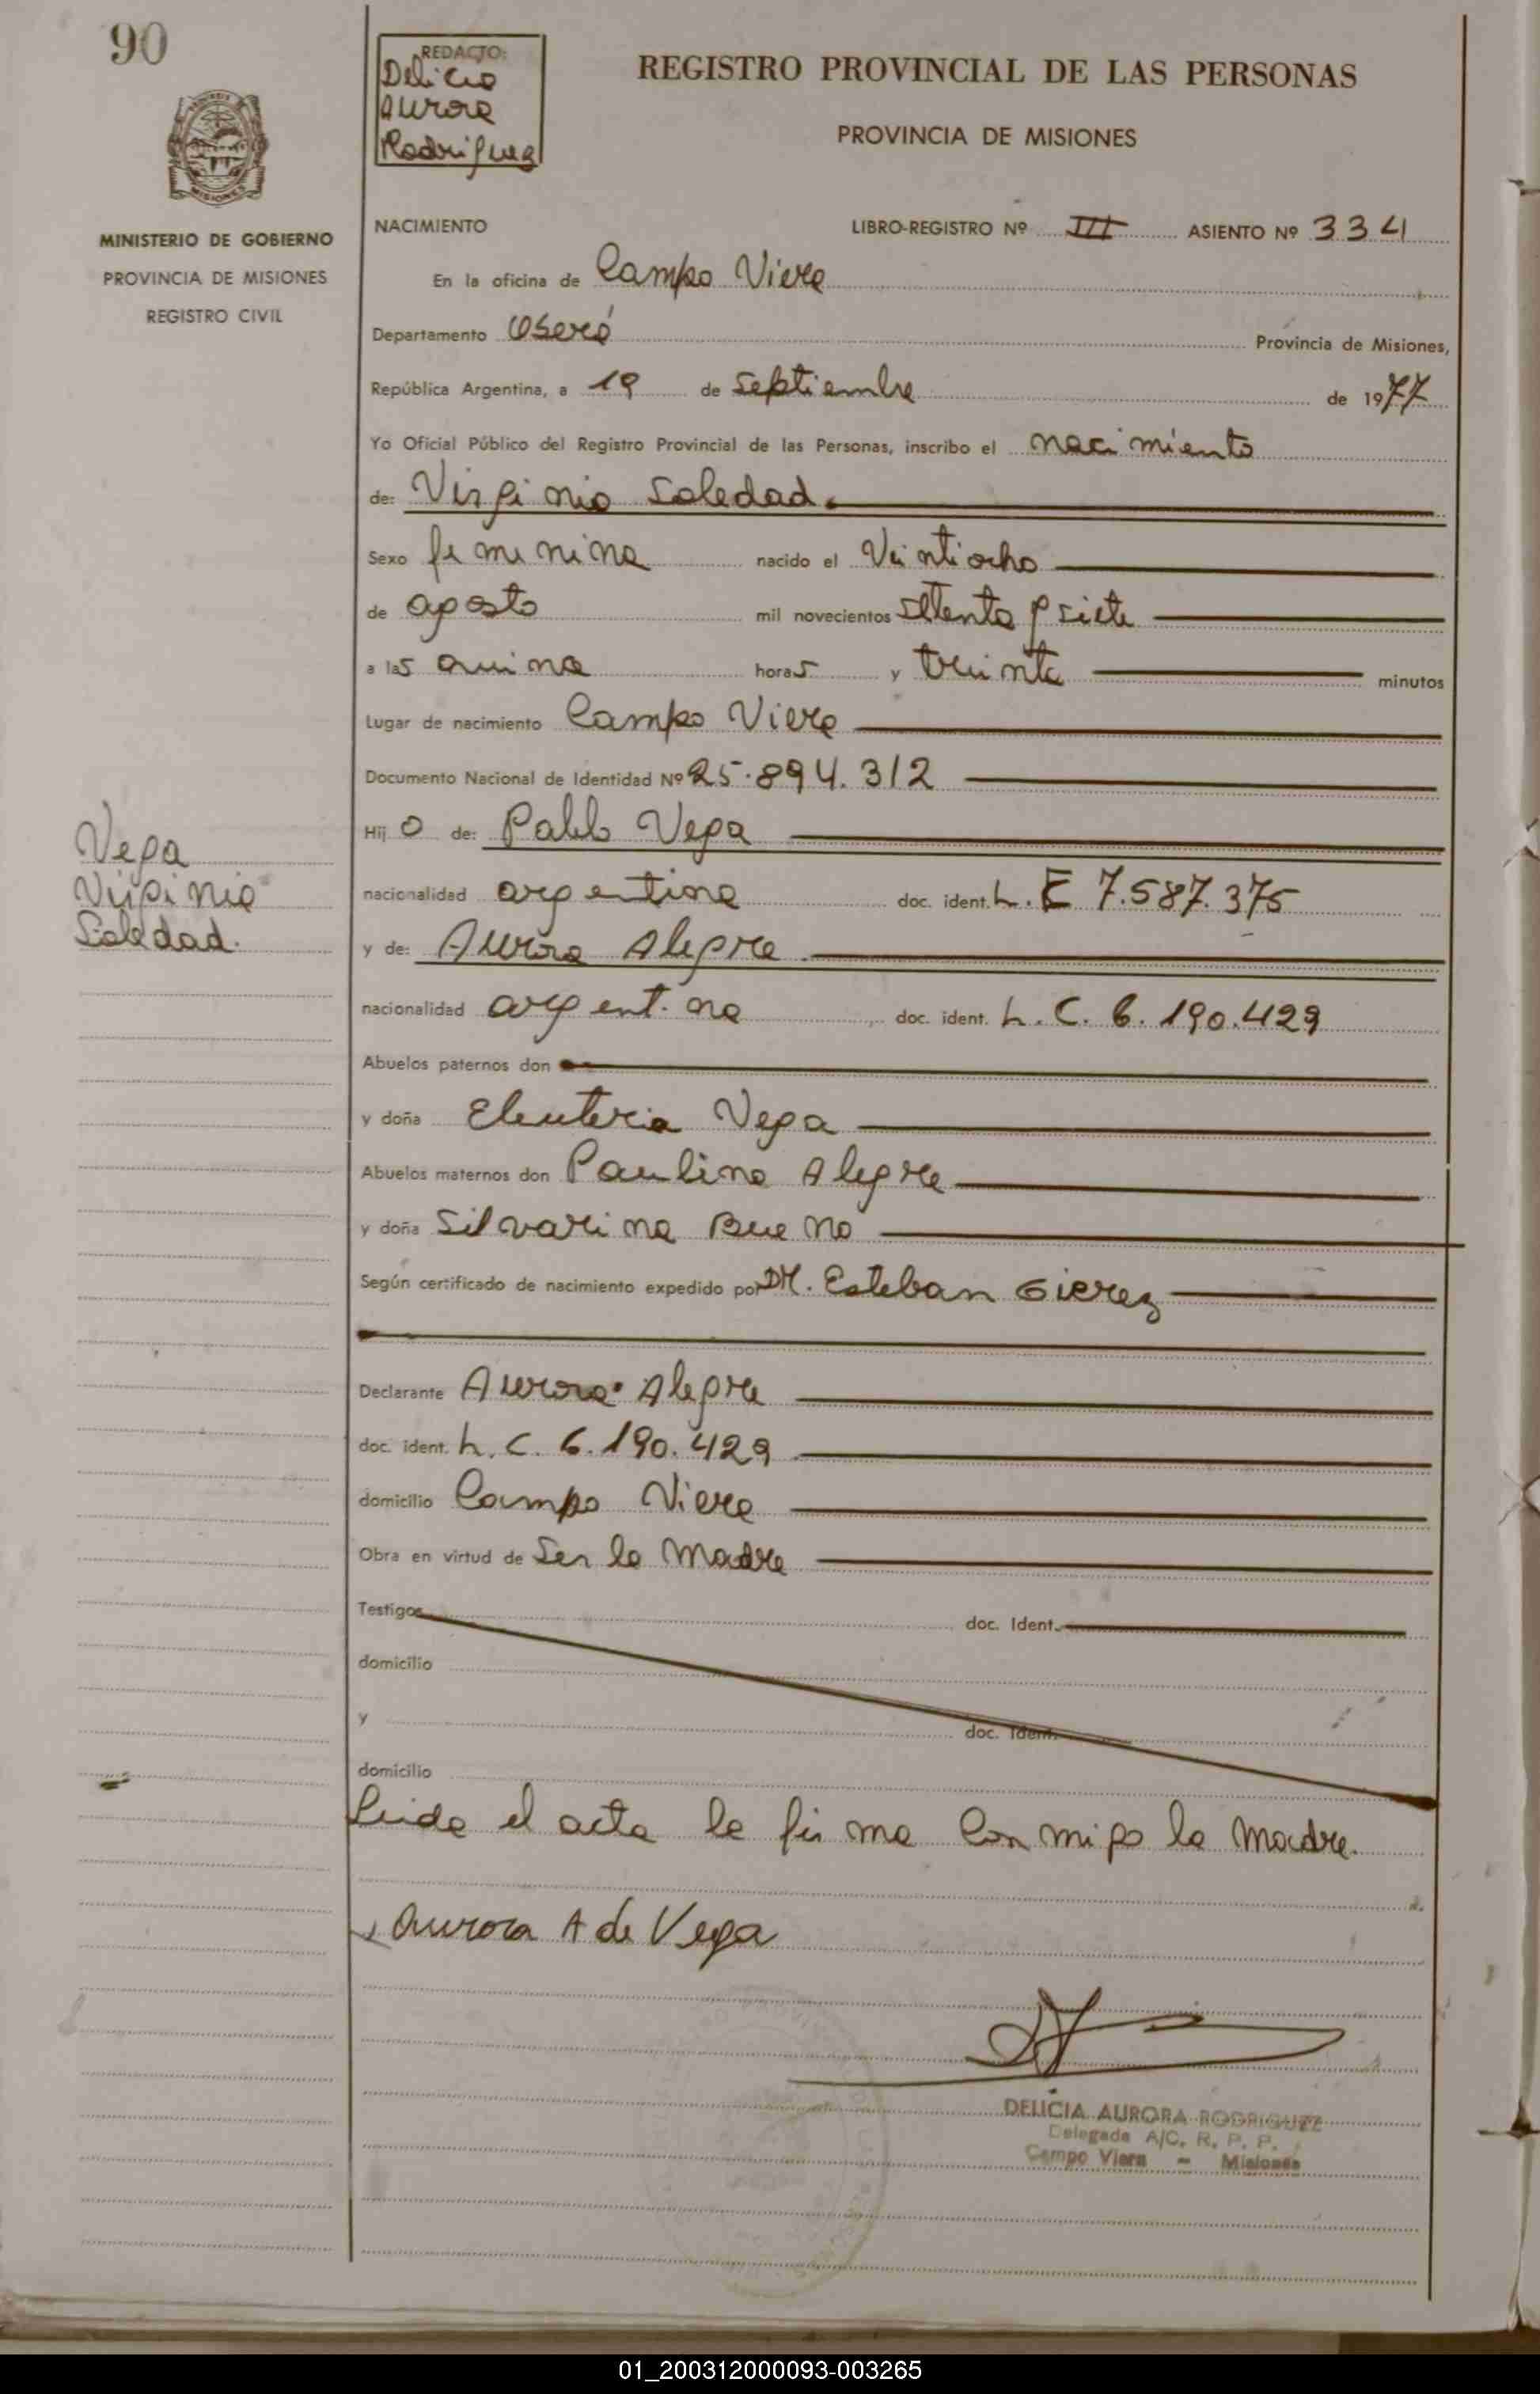 90
REDACTO:
Delicia
Aurora
Rodriguez
REGISTRO PROVINCIAL DE LAS PERSONAS
PROVINCIA DE MISIONES
MISIONES
MINISTERIO DE GOBIERNO
PROVINCIA DE MISIONES
REGISTRO CIVIL
NACIMIENTO LIBRO-REGISTRO Nº III ASIENTO Nº 334
En la oficina de Campo Viera
Departamento Oberá Provincia de Misiones,
República Argentina, a 19 de Septiembre de 1977
Yo Oficial Público del Registro Provincial de las Personas, inscribo el nacimiento
de: Virginia Soledad.
Sexo femenina nacido el Veintiocho
de agosto mil novecientos setenta y siete
a las quince horas y treinta minutos
Lugar de nacimiento Campo Viera
Documento Nacional de Identidad Nº 25.894.312
Hij o de: Pablo Vega
Vega
Virginia
Soledad.
nacionalidad argentina doc. ident. L. E 7.587.375
y de: Aurora Alegre
nacionalidad argentina doc. ident. L. C. 6.190.429
Abuelos paternos don
y doña Eleuteria Vega
Abuelos maternos don Paulino Alegre
y doña Silvarina Bueno
Según certificado de nacimiento expedido por Dr. Esteban Gierez
Declarante Aurora Alegre
doc. ident. L. C. 6.190.429
domicilio Campo Viera
Obra en virtud de Ser la Madre
Testigos doc. Ident.
domicilio
y doc. Ident.
domicilio
Leida el acta la firma Conmigo la Madre.
Aurora A de Vega
DELICIA AURORA RODRIGUEZ
Delegada A/C. R. P. P.
Campo Viera - Misiones
01_200312000093-003265